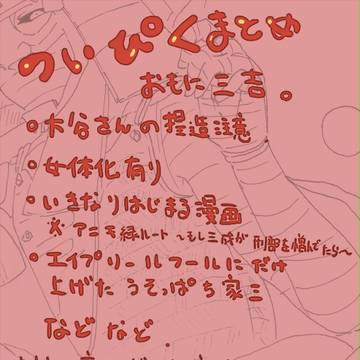 ついぴくまとめ
おもに三吉。
大谷さんの捏造注意
女体化有り
いきなりはじまる漫画
※アニメ緑ルート〜もし三成が刑部を憎んでたら〜
エイプリールフールにだけ
上げたうそっぱち家三
などなど